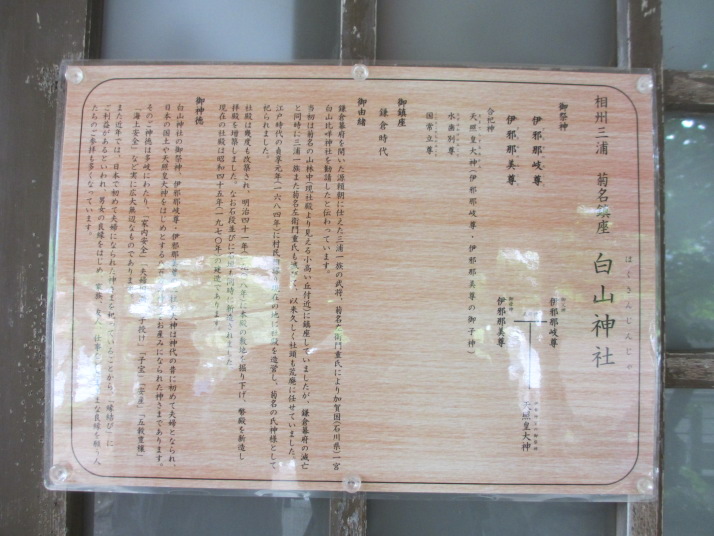 相州三浦 菊名鎮座 白山神社
はくさんじんじゃ
御祭神
伊邪那岐尊
伊邪那美尊
伊邪那岐尊
伊邪那美尊
天照皇大神
合祀神
天照皇大神(伊邪那岐尊・伊邪那美尊の御子神)
水歯別尊
国常立尊
御鎮座
鎌倉時代
御由緒
鎌倉幕府を開いた源頼朝に仕えた三浦一族の武将、菊名左衛門重氏により加賀国(石川県)一宮
白山比咩神社を勧請したと伝わっています。
当初は菊名の山林中(現社殿より見える小高い丘付近)に鎮座していましたが、鎌倉幕府の滅亡
と同時に三浦一族また菊名左衛門重氏も、以来久しく社頭も荒廃に任せていました。
江戸時代の貞享元年(一六八四年)に村民現在の地に社殿を造営し、菊名の氏神様として
祀られました。
社殿は幾度も改築され、明治四十一年に本殿の敷地を掘り下げ、幣殿を新造し
拝殿を増築しました。なお石段並びに同時に新造されました。
現在の社殿は昭和四十五年(一九七〇年)の建造であります。
御神徳
白山神社の御祭神、伊邪那岐尊・伊邪那美尊の二柱の大神は神代の昔に初めて夫婦となられ、
日本の国土や天照皇大神をはじめとする八百お産みになられた神さまであります。
そのご神徳は多岐にわたり、「家内安全」「夫婦「子授け」「子宝」「安産」「五穀豊穣」
「海上安全」など実に広大無辺なものであります。
また近年では、日本で初めて夫婦になられた神さまを祀っていることから、「縁結び」に
ご利益があるといわれ、男女の良縁をはじめ、家族、友人、仕事な良縁を願う人
たちのご参拝も多くなっています。